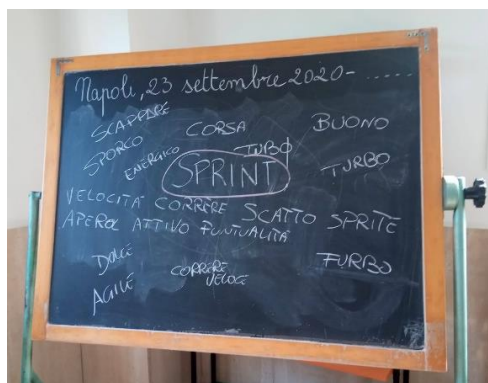 Napoli, 23 settembre 2020- .....
SCAPPARE CORSA BUONO
SPORCO ENERGICO TURBO TURBO
SPRINT
VELOCITÀ CORRERE SCATTO SPRITE
APEROL ATTIVO PUNTUALITÀ
DOLCE CORRERE VELOCE FURBO
AGILE